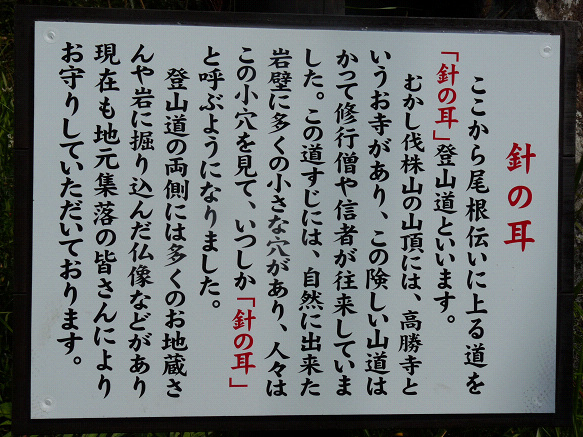 針の耳
ここから尾根伝いに上る道を
「針の耳」登山道といいます。
むかし伐株山の山頂には、高勝寺と
いうお寺があり、この険しい山道は
かつて修行僧や信者が往来していま
した。この道すじには、自然に出来た
岩壁に多くの小さな穴があり、人々は
この小穴を見て、いつしか「針の耳」
と呼ぶようになりました。
登山道の両側には多くのお地蔵さ
んや岩に掘り込んだ仏像などがあり
現在も地元集落の皆さんにより
お守りしていただいております。